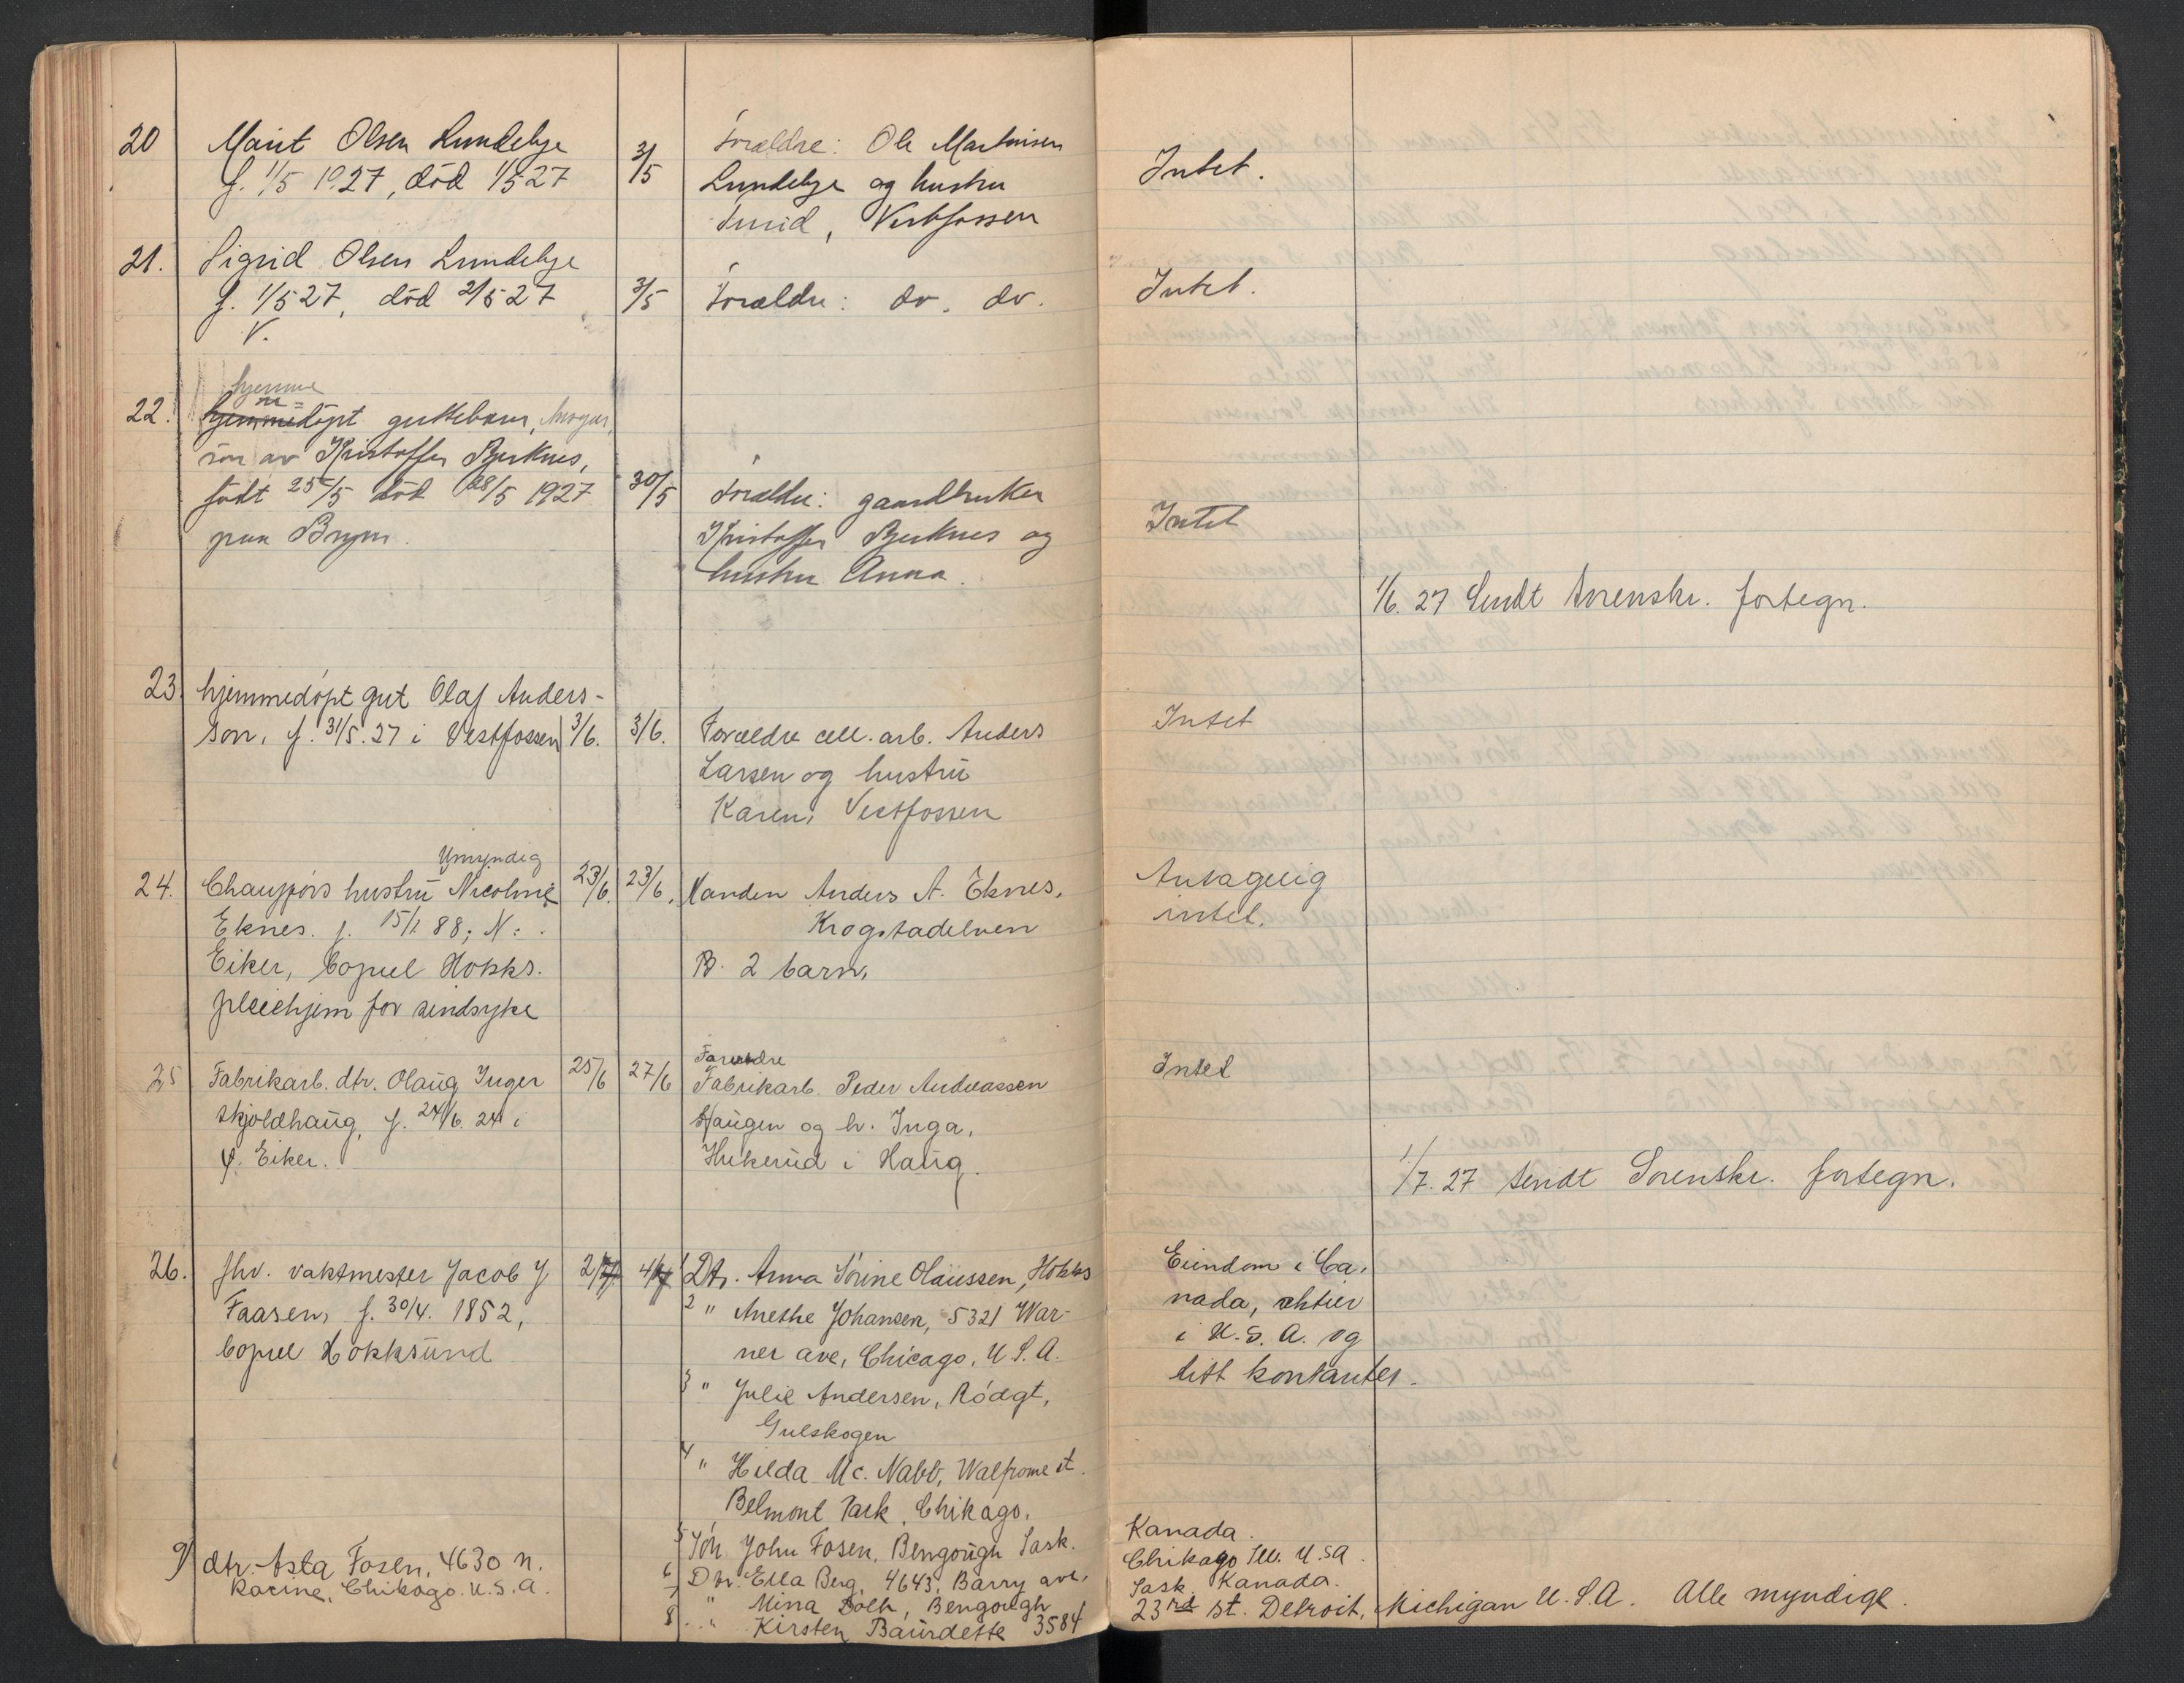 20 Marit Olsen Lundebye 3/5 Forældre: Ole Martinsen Intet.
f. 1/5 1927, död 1/5 27 Lundebye og hustru
Vestfossen
21. Sigrid Olsen Lundebye
f. 1/5 27, död 2/5 27 3/5 Forældre: do. do. Intet.
V.
hjemme
22. döpt guttebarn,
sön av Kristoffer Bjerknes,
födt 25/5 död 28/5 1927 30/5 Forældre: gaardbruker Intet
paa Kristoffer Bjerknes og
hustru Anna.
1/6. 27 Sendt Sorenskr. fortegn.
23. hjemmedöpt gut Olaf Anders-
son, f. 31/5. 27 i Vestfossen 3/6. 3/6. Forældre cell. arb. Anders Intet
Larsen og hustru
Karen, Vestfossen
Umyndig
24. Chaufförs hustru Nicoline 23/6. 23/6. Manden Anders A. Eknes, Antagelig
Eknes. f. 15/1 88; N. Krogstadelven intet.
Eiker, bopel Hokks. B. 2 barn,
pleiehjem for sindsyke
Forældre
25 Fabrikarb. dtr. Olaug Inger 25/6 27/6 Fabrikarb. Peder Andreassen Intet
Skjoldhaug, f. 24/6. 24 i Haugen og h. Inga,
Ø. Eiker. Hukerud i Haug.
1/7. 27 sendt Sorenskr. fortegn.
26. fhv. vaktmester Jacob J. 2/7 4/7 1 Dtr. Anna Sörine Olaussen, Hokks Eiendom i Ca-
Faasen, f. 30/4. 1852, 2 " Anethe Johansen, 5321 War- nada, aktier
bopel Hokksund ner ave, Chicago, U.S.A. i U.S.A. og
3 " Julie Andersen, Rödgt, litt kontanter.
Gulskogen
4 " Hilda Mc. Nabb, Walfrome st.
Belmont Park, Chikago.
5 Sön John Fosen, Bengough Sask. Kanada.
9) dtr. Asta Fosen, 4630 N. 6 Dtr. Ella Berg, 4643, Barry ave, Chikago Ill. U.SA.
Racine, Chikago. U.S.A. 7 " Mina, Bengough Sask. Kanada.
8 " Kirsten Baurdette 3584 23rd st. Detroit, Michigan U.S.A. Alle myndige.